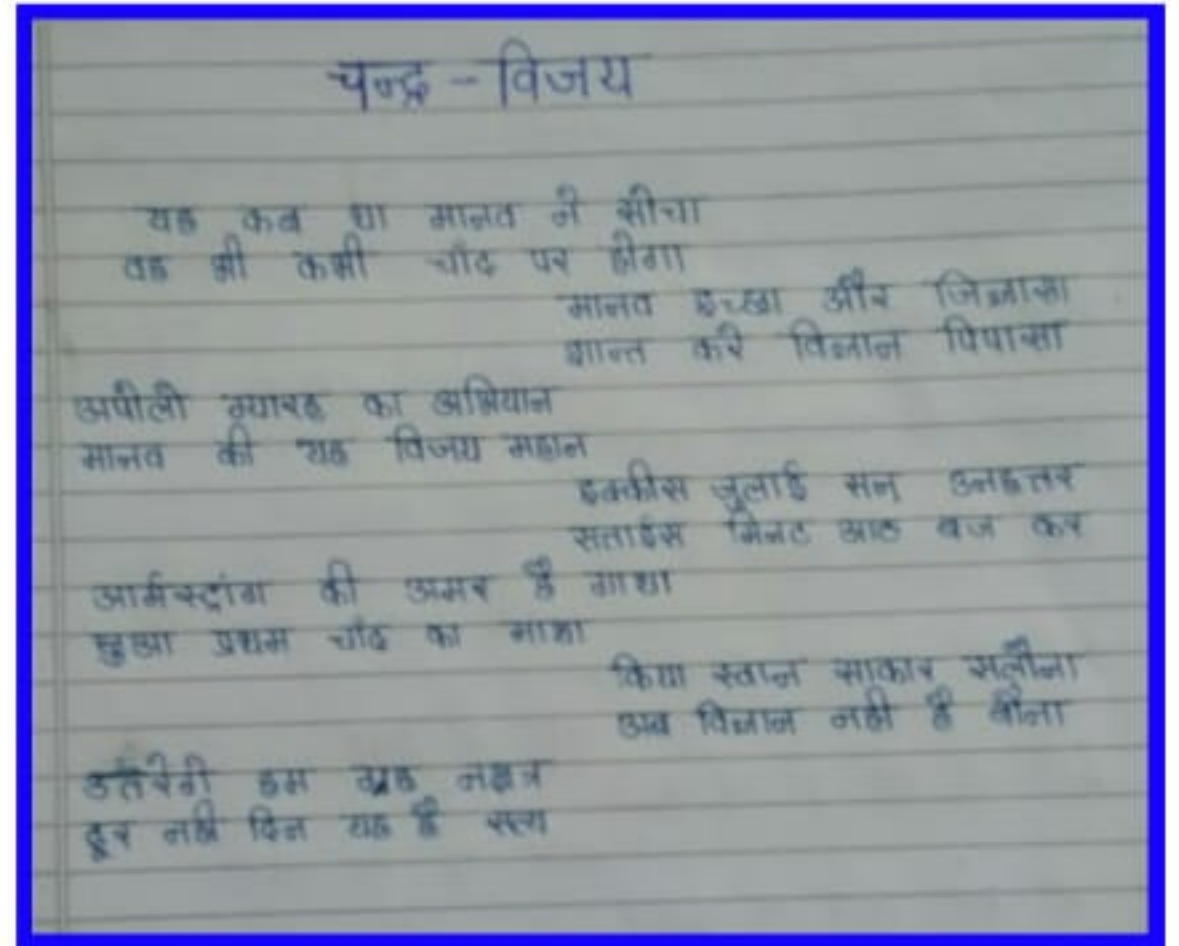 चन्द्र - विजय
यह कब था मानव ने सोचा
वह भी कभी चाँद पर होगा
मानव इच्छा और जिज्ञासा
शान्त करे विज्ञान पिपासा
अपोलो ग्यारह का अभियान
मानव की यह विजय महान
इक्कीस जुलाई सन् उनहत्तर
सताईस मिनट आठ बज कर
आर्मस्ट्रांग की अमर है गाथा
छुआ प्रथम चाँद का माथा
किया स्वप्न साकार सलौना
अब विज्ञान नही है बौना
उतरेगे हम ग्रह नक्षत्र
दूर नही दिन यह है सत्य